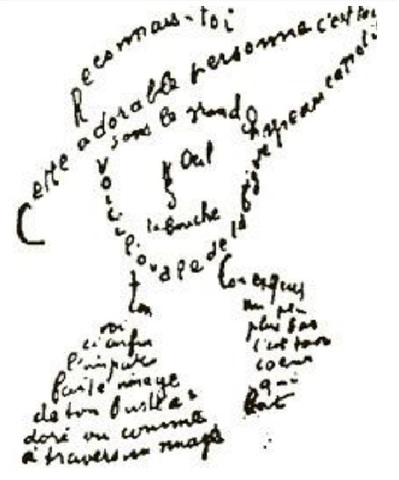 Reconnais-toi
Cette adorable personne c'est toi
sous le grand chapeau canoti
Oeil
Nez
la bouche
Voici l'ovale de ta figure
ton
Cou exquis
voi
ci enfin
l'impar
faite image
de ton buste a
doré vu comme
à travers un nuage
un peu
plus bas
c'est ton
coeur
qui
bat